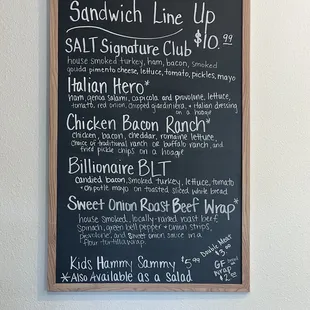 Sandwich Line Up
$10.99
SALT Signature Club
house smoked turkey, ham, bacon, smoked
gouda pimento cheese, lettuce, tomato, pickles, mayo
Italian Hero*
ham, genoa salami, capicola and provolone, lettuce,
tomato, red onion, chopped giardiniera, + italian dressing
on a hoagie
Chicken Bacon Ranch*
chicken, bacon, cheddar, romaine lettuce,
choice of traditional ranch or buffalo ranch, and
fried pickle chips on a hoagie
Billionaire BLT
candied bacon, smoked turkey, lettuce, tomato
+ chipotle mayo on toasted sliced white bread
Sweet Onion Roast Beef Wrap*
house smoked, locally-raised roast beef,
spinach, green bell pepper + onion strips,
provolone, and sweet onion sauce in a
flour tortilla wrap.
Double Meat
$3.00
GF
Wrap
$2.50
Kids Hammy Sammy $5.99
*Also Available as a salad